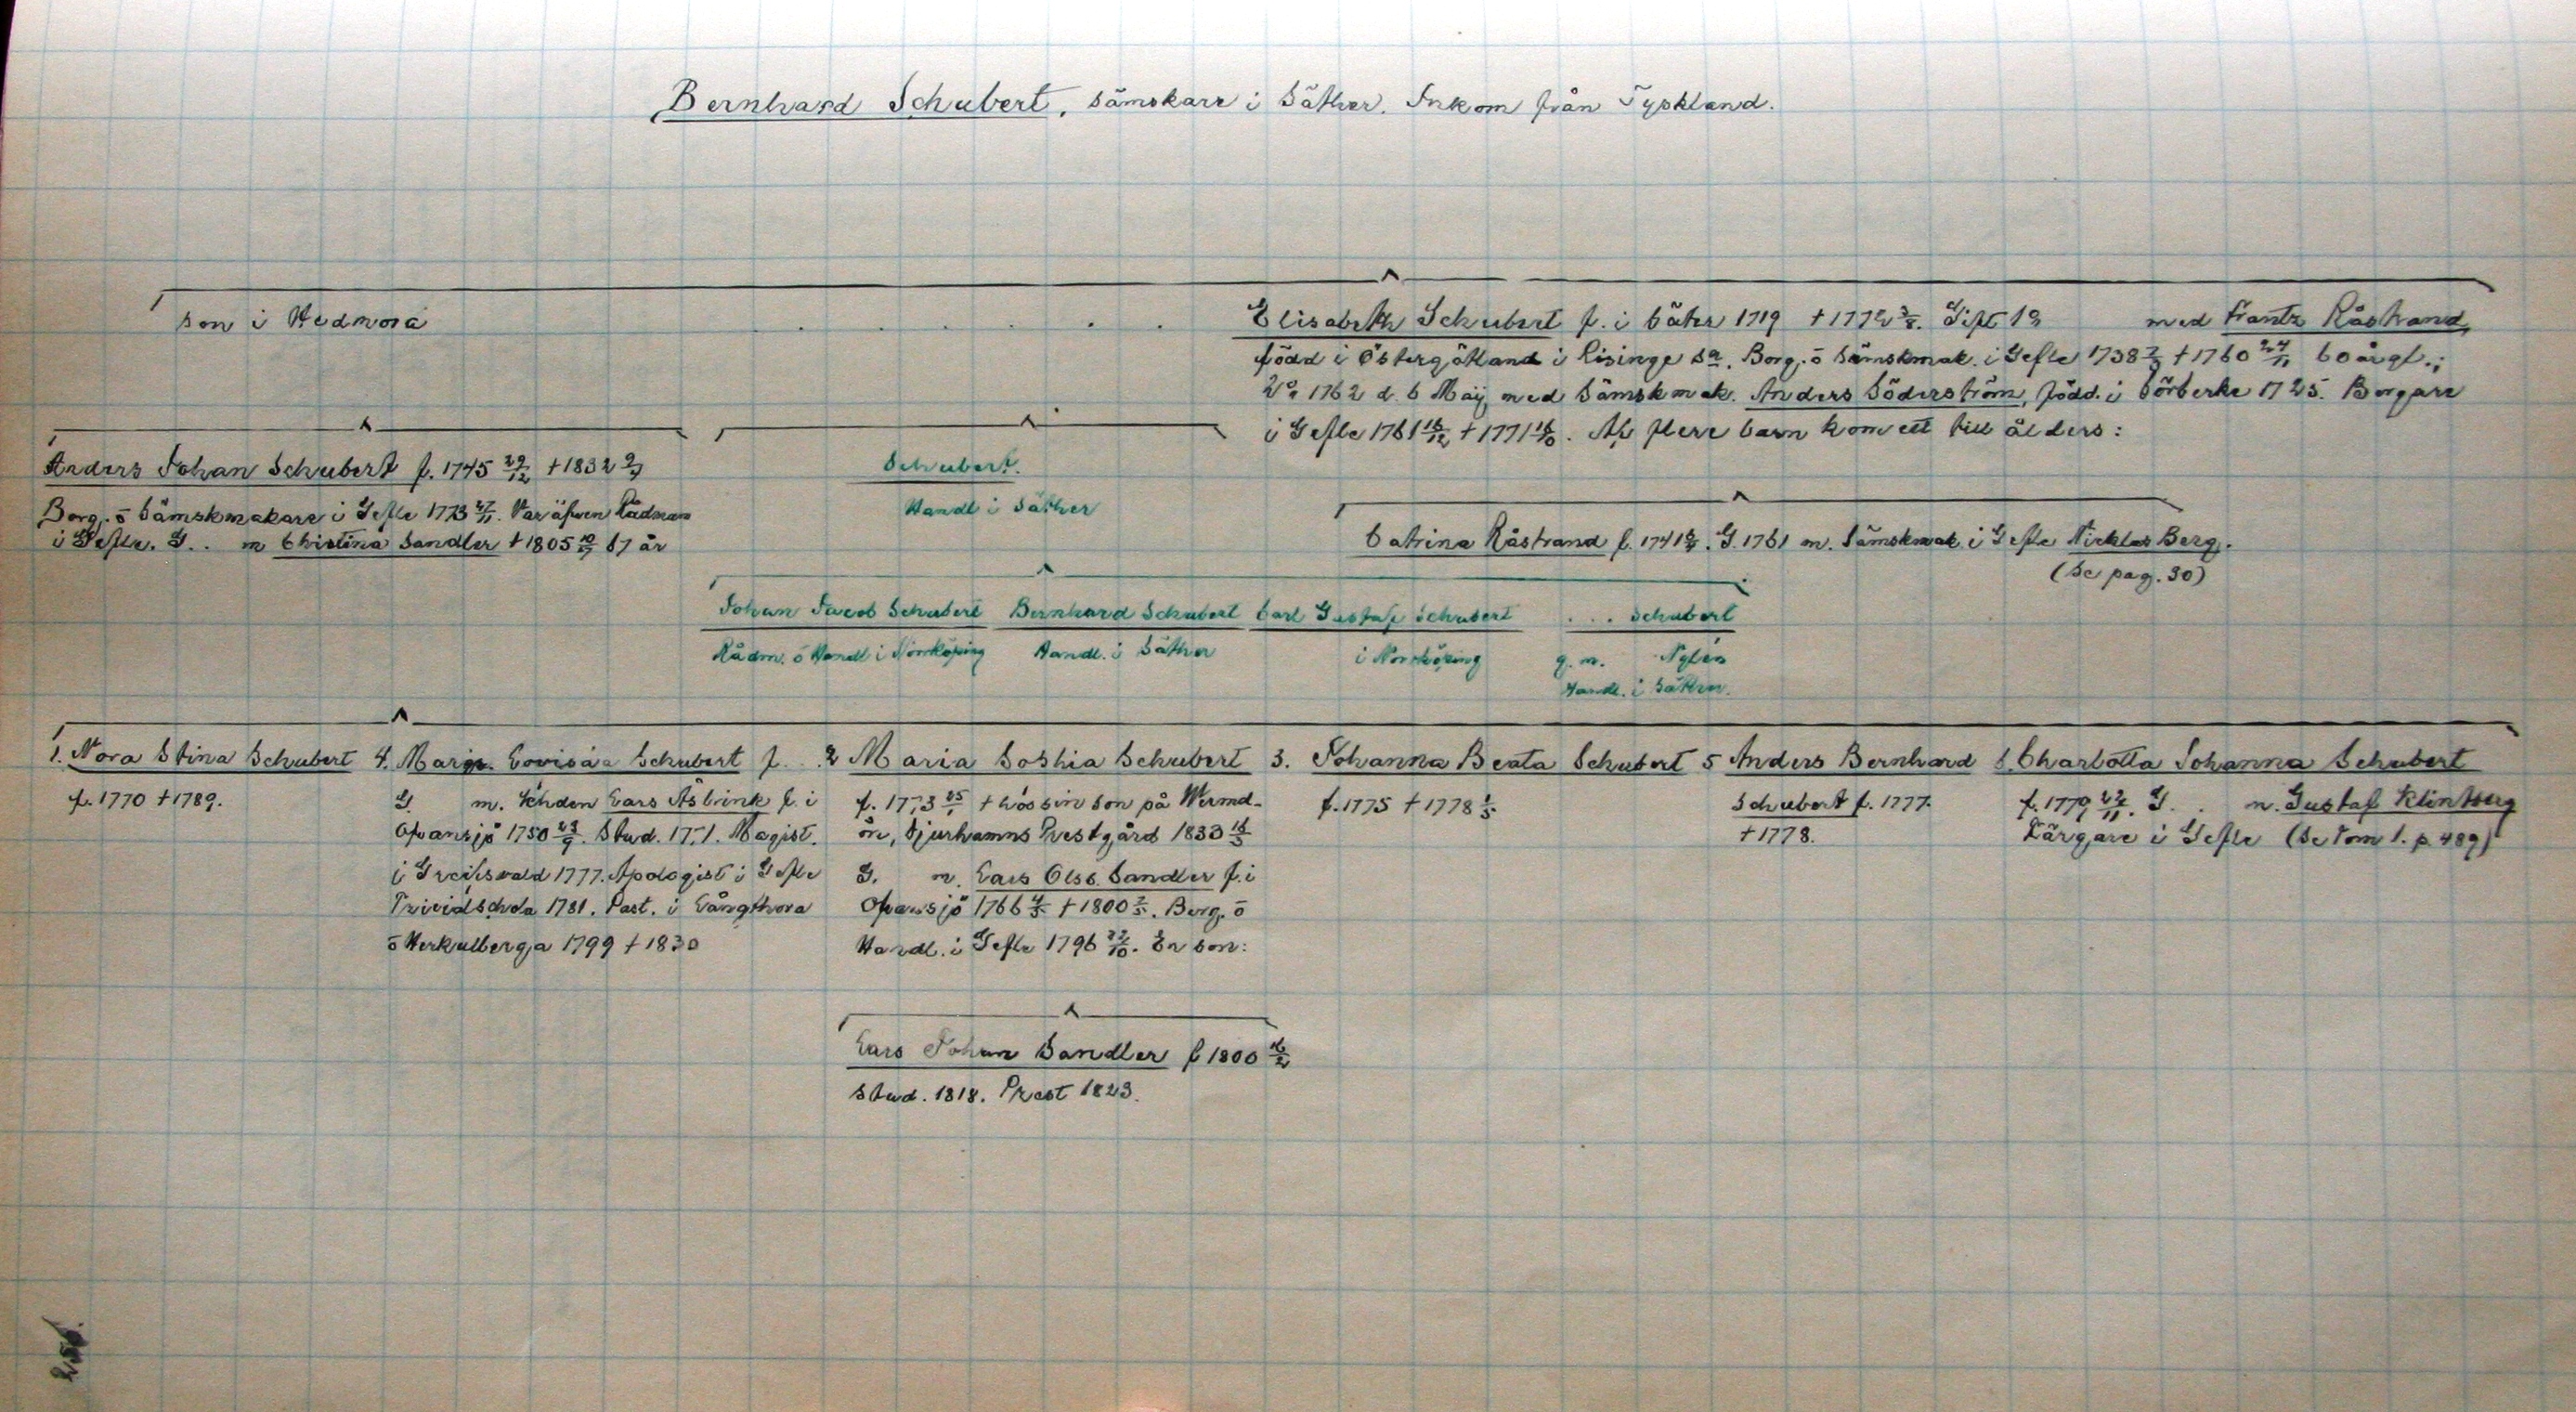 Bernhard Schubert, Sämskare i Säther. Inkom från Tyskland.
Son i Hedmora
Elisabeth Schubert f. i Säter 1719 † 1772 3/8. Gift 1o med Frantz Råstrand,
född i Östergötland i Risinge Sn. Borg. o Sämskmak. i Gefle 1738 † 1760 24/11 60 år gl.;
2o 1762 d. 6 Maij med Sämskmak. Anders Söderström, född i Sörberke 1725. Borgare
i Gefle 1761 16/12 † 1771 16/10. Af flere barn kom ett till ålders:
Anders Johan Schubert f. 1745 29/12 † 1832
Borg. o Sämskmakare i Gefle 1773 27/11. Var äfven Rådman
i Gefle. G.. m Christina Sandler † 1805 67 år
Schubert.
Handl i Säther
Catrina Råstrand f. 1741. G. 1761 m. Sämskmak. i Gefle Nicklas Berg.
(Se pag. 30)
Johan Jacob Schubert Bernhard Schubert Carl Gustaf Schubert ... Schubert
Rådm. o Handl i Norrköping Handl. i Säther i Norrköping g. m. Nylén
Handl. i Säther.
1. Nora Stina Schubert 4. Marg. Lovisa Schubert f. .. 2 Maria Sophia Schubert 3. Johanna Beata Schubert 5 Anders Bernhard 6. Charlotta Johanna Schubert
f. 1770 † 1789.
G m. Lars Åsbrink f. i
Ofansjö 1750 23/9. Stud. 17.1. Magist.
i Greifswald 1777. Apologist i Gefle
Trivialschola 1781. Past. i Långthora
o Herkulberga 1799 † 1830
f. 1773 25/1 † hos sin son på Wermd-
ön, Djurhamns Prestgård 1833 16/3
G. m. Lars Olss. Sandler f. i
Ofansjö 1766 4/5 † 1800 2/5. Borg. o
Handl. i Gefle 1796 22/10. En son:
f. 1775 † 1778 1/5
Schubert f. 1777.
† 1778.
f. 1779 22/11. G. . m. Gustaf Klintberg
Färgare i Gefle (Se Tom 1. p. 489)
Lars Johan Sandler f 1800 16/2
Stud. 1818. Prest 1823.